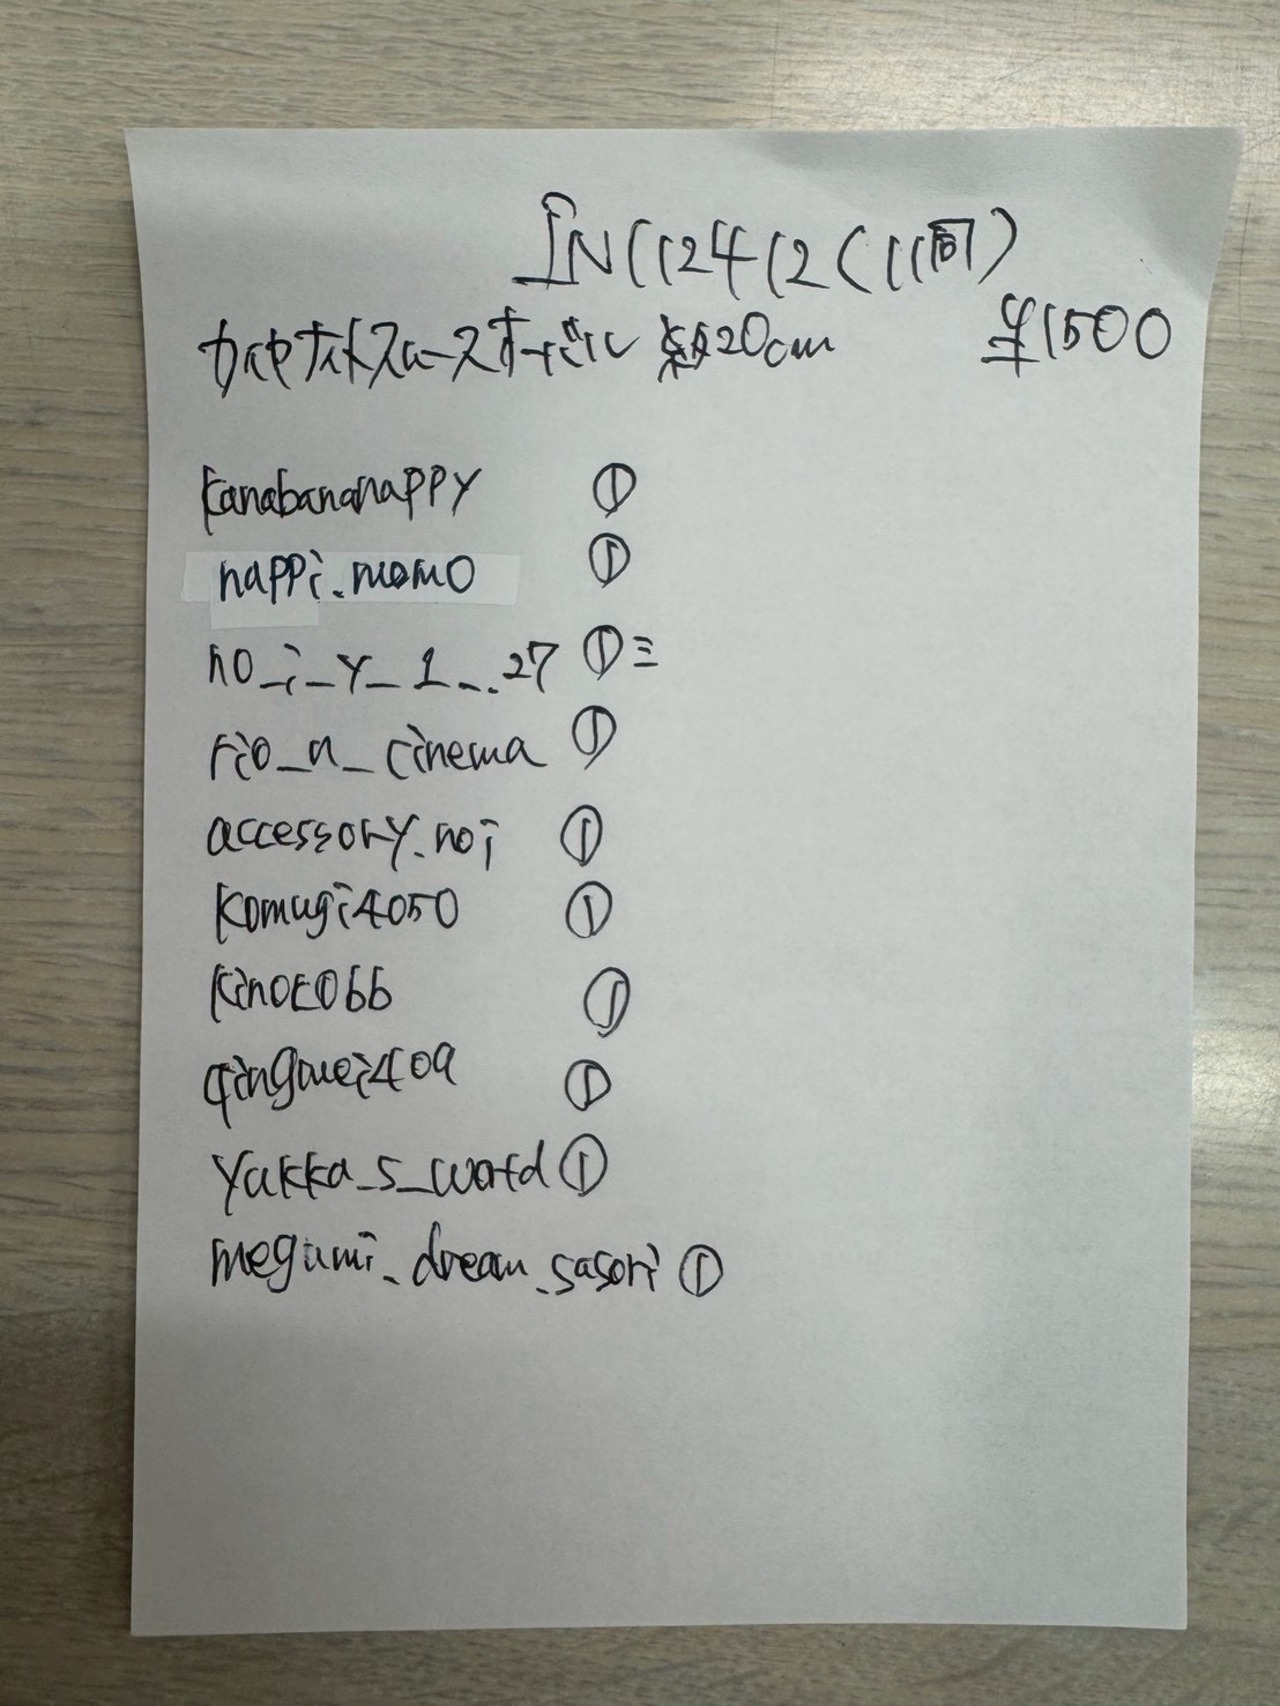 IN(112412(11個)
カイヤナイトスムースオーバル 約20cm ¥1500
kanabananappy ①
nappi.momo ①
no_i_y_1_.27 ①三
rio_n_cinema ①
accessory.noi ①
komugi4050 ①
kinoco66 ①
qingmei409 ①
yukka_s_world ①
megumi.dream.sasori ①